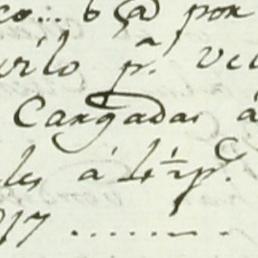 co... 6 @ por
rilo p.ª Vel
Cargadas á
les á 4½ p.
817 ........